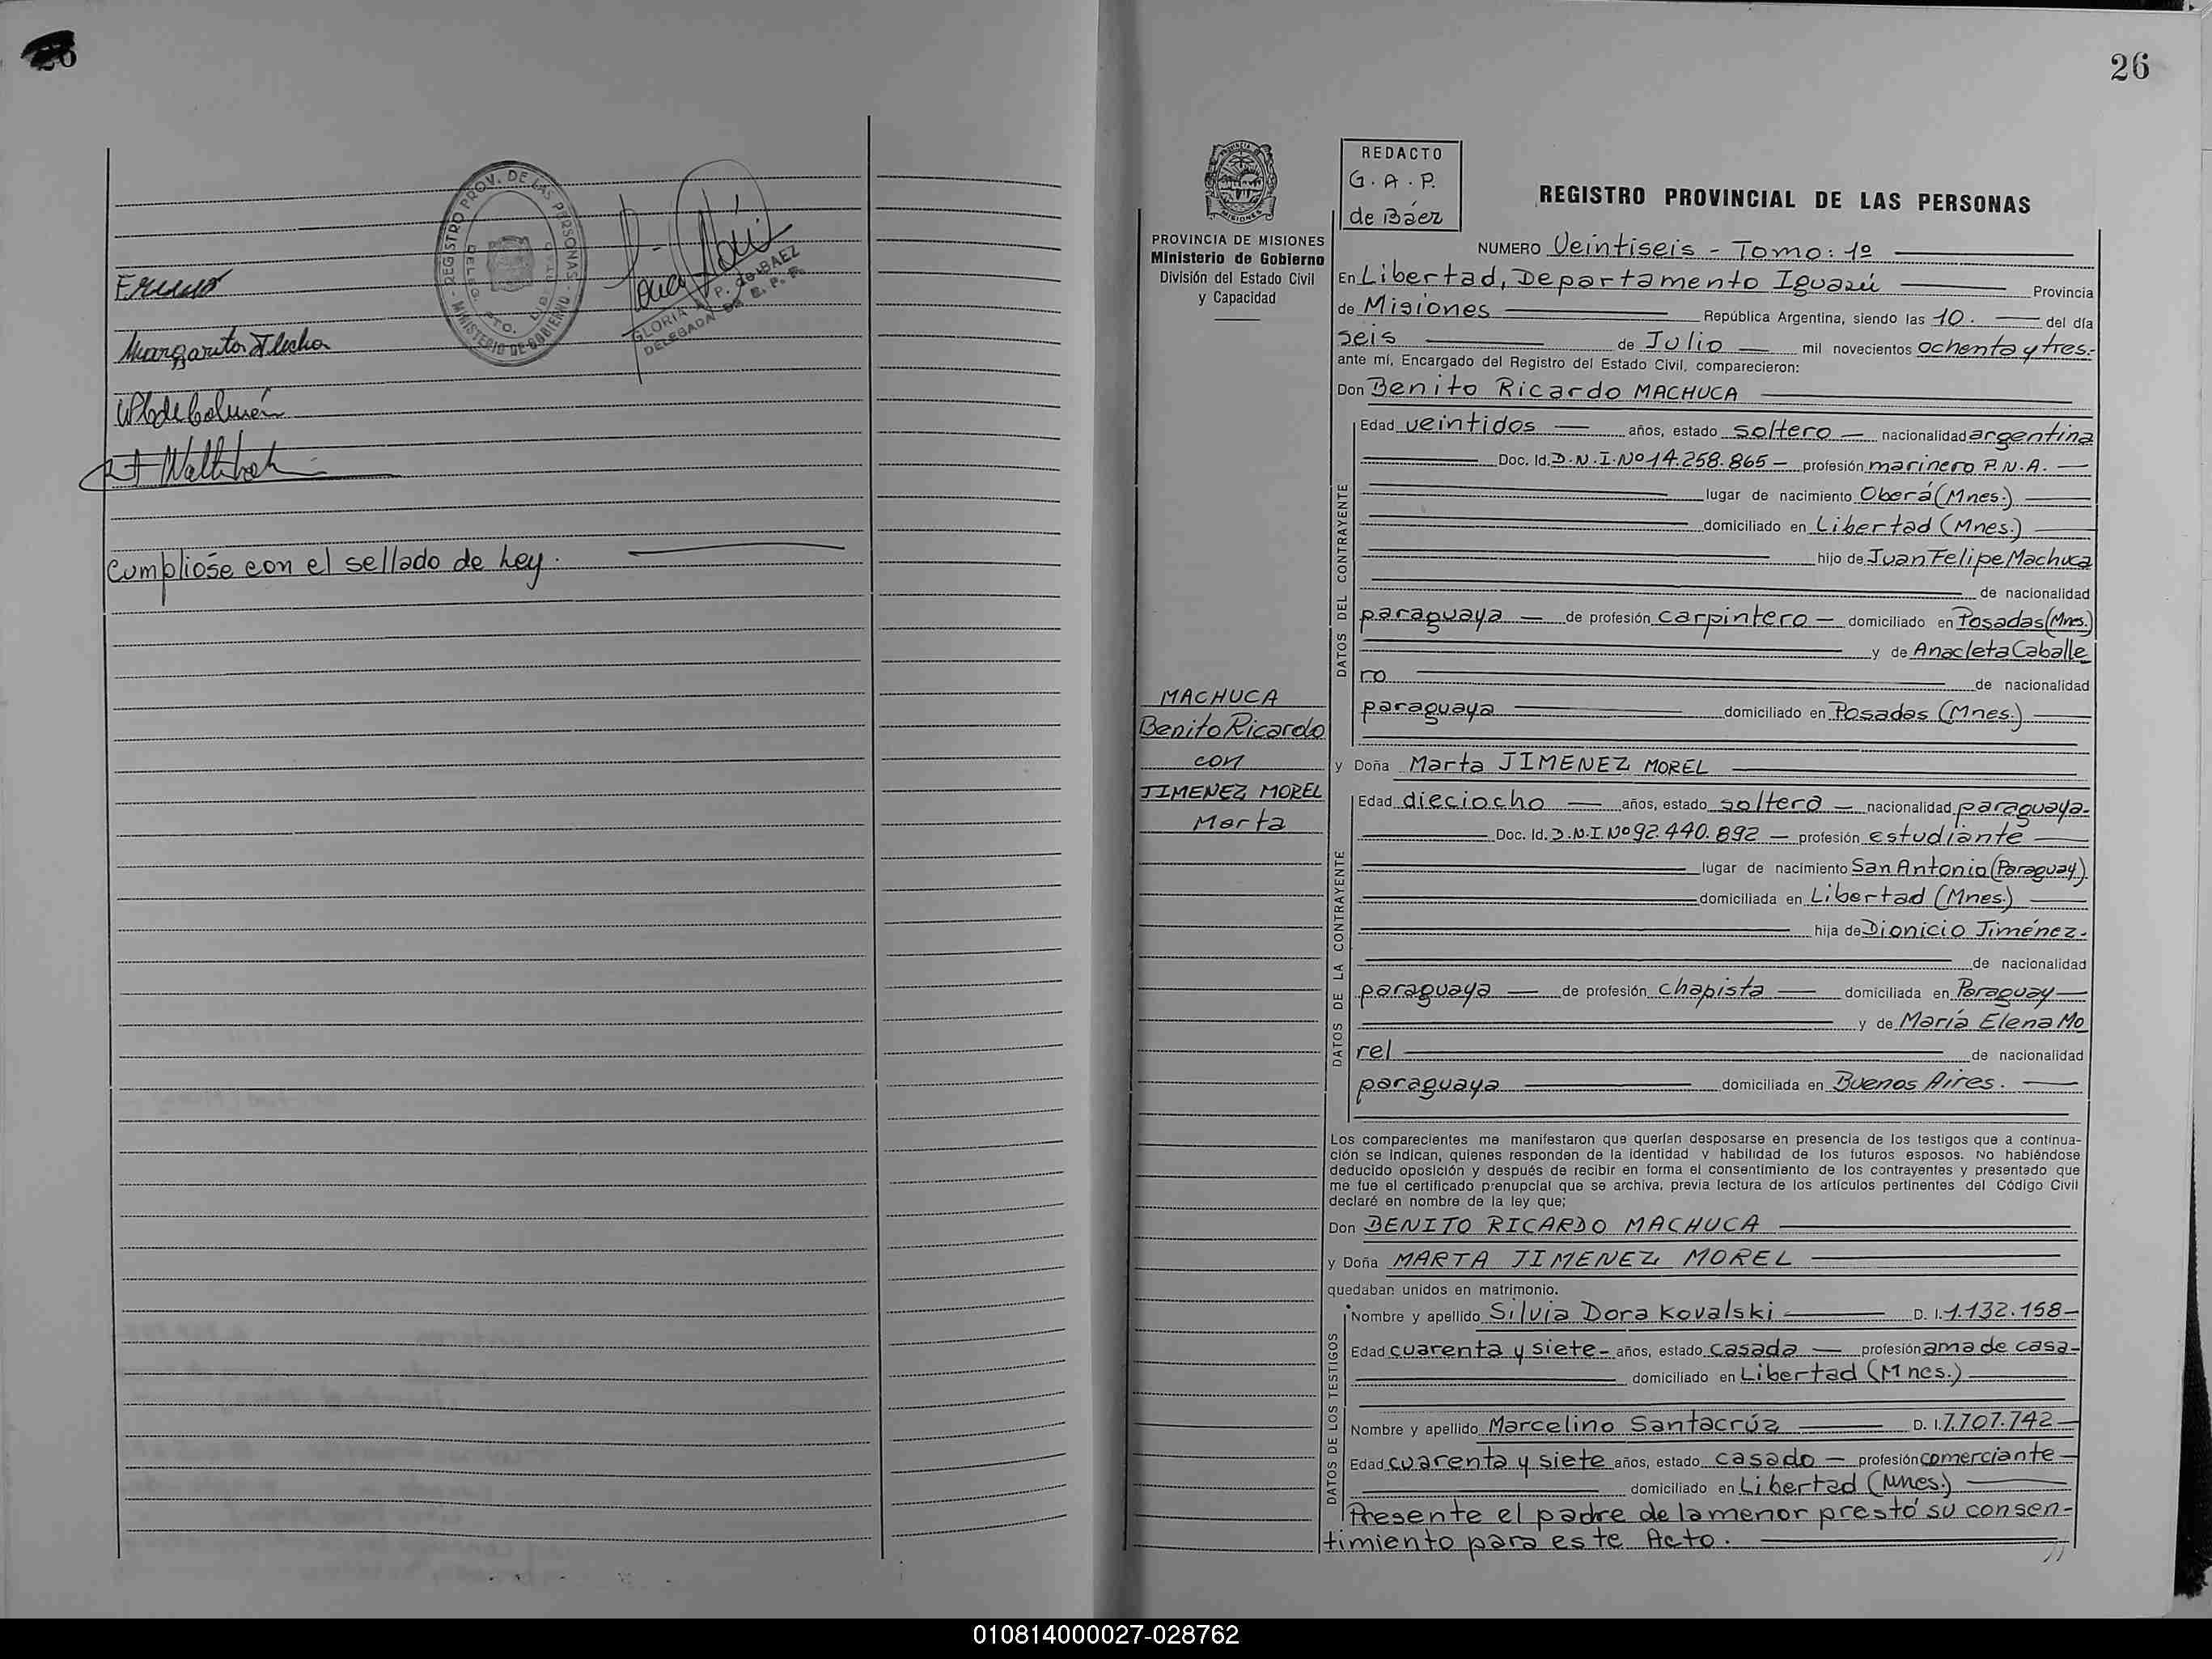 REGISTRO PROV. DE LAS PERSONAS
MINISTERIO DE GOBIERNO
GLORIA A. P. de BAEZ
DELEGADA DE R. P. P.
Margarita
Cumplióse con el sellado de Ley.
26
PROVINCIA DE MISIONES
Ministerio de Gobierno
División del Estado Civil
y Capacidad
REDACTO
G. A. P.
de Báez
REGISTRO PROVINCIAL DE LAS PERSONAS
NUMERO Veintiseis - Tomo: 1º
En Libertad, Departamento Iguazú Provincia
de Misiones República Argentina, siendo las 10. del día
seis de Julio mil novecientos ochenta y tres.-
ante mí, Encargado del Registro del Estado Civil, comparecieron:
Don Benito Ricardo MACHUCA
DATOS DEL CONTRAYENTE
Edad veintidos años, estado soltero nacionalidad argentina
Doc. Id. D.N.I. Nº 14.258.865 - profesión marinero P.N.A.
lugar de nacimiento Oberá (Mnes.)
domiciliado en Libertad (Mnes.)
hijo de Juan Felipe Machuca
de nacionalidad
paraguaya de profesión carpintero domiciliado en Posadas (Mnes.)
y de Anacleta Caballe
ro de nacionalidad
paraguaya domiciliado en Posadas (Mnes.)
MACHUCA
Benito Ricardo
con
JIMENEZ MOREL
Marta
y Doña Marta JIMENEZ MOREL
DATOS DE LA CONTRAYENTE
Edad dieciocho años, estado soltera nacionalidad paraguaya-
Doc. Id. D.N.I. Nº 92.440.892 - profesión estudiante
lugar de nacimiento San Antonio (Paraguay)
domiciliada en Libertad (Mnes.)
hija de Dionicio Jiménez.
de nacionalidad
paraguaya de profesión chapista domiciliada en Paraguay
y de María Elena Mo
rel de nacionalidad
paraguaya domiciliada en Buenos Aires.
Los comparecientes me manifestaron que querían desposarse en presencia de los testigos que a continua-
ción se indican, quienes responden de la identidad y habilidad de los futuros esposos. No habiéndose
deducido oposición y después de recibir en forma el consentimiento de los contrayentes y presentado que
me fue el certificado prenupcial que se archiva, previa lectura de los artículos pertinentes del Código Civil
declaré en nombre de la ley que;
Don BENITO RICARDO MACHUCA
y Doña MARTA JIMENEZ MOREL
quedaban unidos en matrimonio.
DATOS DE LOS TESTIGOS
Nombre y apellido Silvia Dora Kovalski D. I. 1.132.158
Edad cuarenta y siete años, estado casada profesión ama de casa
domiciliado en Libertad (Mnes.)
Nombre y apellido Marcelino Santacrúz D. I. 7.707.742
Edad cuarenta y siete años, estado casado profesión comerciante
domiciliado en Libertad (Mnes.)
Presente el padre de la menor prestó su consen-
timiento para este Acto.
010814000027-028762